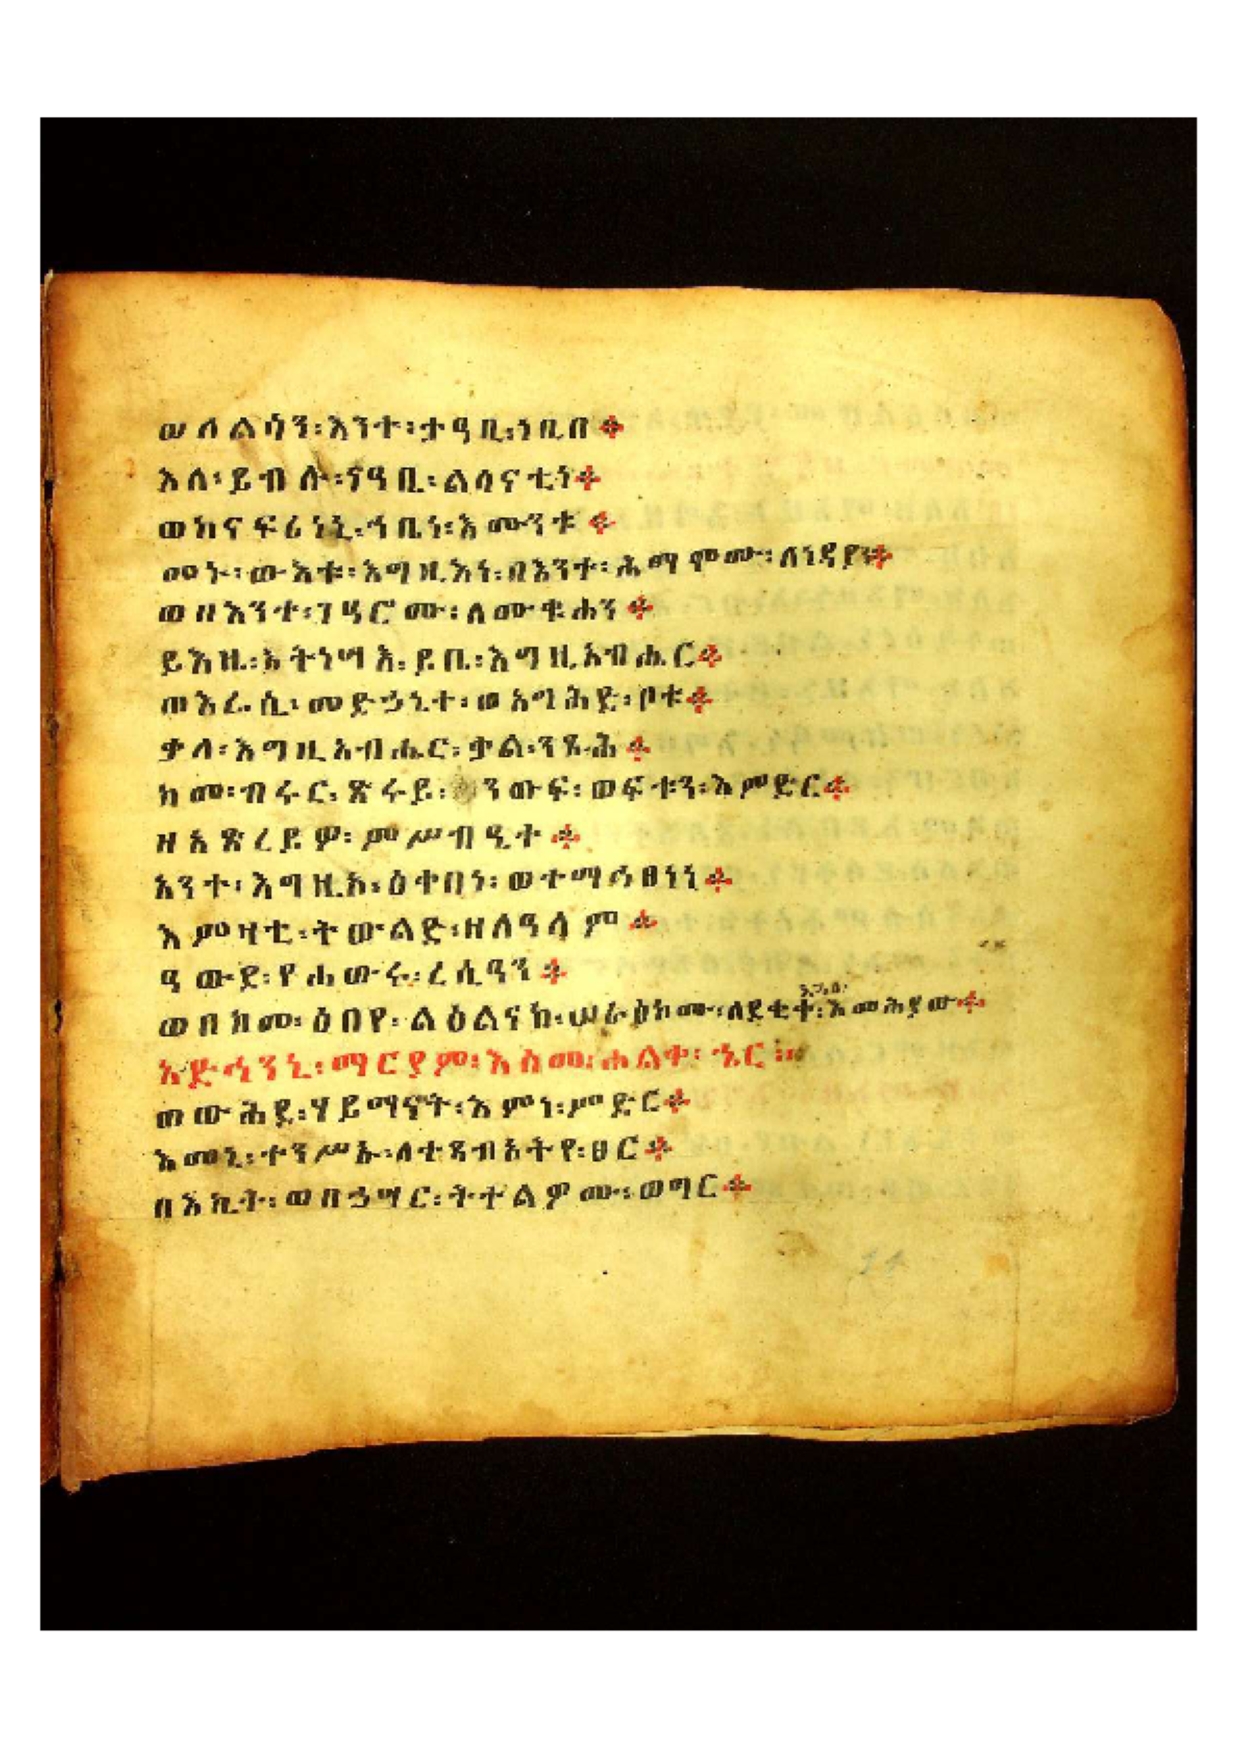 ወለልሳን፡እንተ፡ታዓቢ፡ነቢበ፨
እለ፡ይብሉ፡ናዓቢ፡ልሳናቲነ፨
ወከናፍሪነኒ፡ኀቤነ፡እሙንቱ፨
መኑ፡ውእቱ፡እግዚእነ፡በእንተ፡ሕማሞሙ፡ለነዳያን፨
ወዘእንተ፡ገዓሮሙ፡ለሙቁሐን፨
ይእዜ፡እትነሣእ፡ይቤ፡እግዚአብሔር፨
ወእሬሲ፡መድኃኒተ፡ወአግሕድ፡ቦቱ፨
ቃለ፡እግዚአብሔር፡ቃል፡ንጹሕ፨
ከመ፡ብሩር፡ጽሩይ፡ንጡፍ፡ወፍቱን፡እምድር፨
ዘአጽረይዎ፡ምሥብዒተ፨
አንተ፡እግዚኦ፡ዕቀበነ፡ወተማኅፀነነ፨
እምዛቲ፡ትውልድ፡ዘለዓለም፨
ዓውደ፡የሐውሩ፡ረሲዓን፨
ወበከመ፡ዕበየ፡ልዕልናከ፡ሠራዕኮሙ፡ለደቂቀ፡እመሕያው፨
አድኅንኒ፡ማርያም፡እስመ፡ሐልቀ፡ኄር፡፡
ወውሕደ፡ሃይማኖት፡እምነ፡ምድር፨
እመኒ፡ተንሥኡ፡ለተጻብኦትየ፡ፀር፨
በእኪት፡ወበኃሣር፡ትተልዎሙ፡ወግር፨